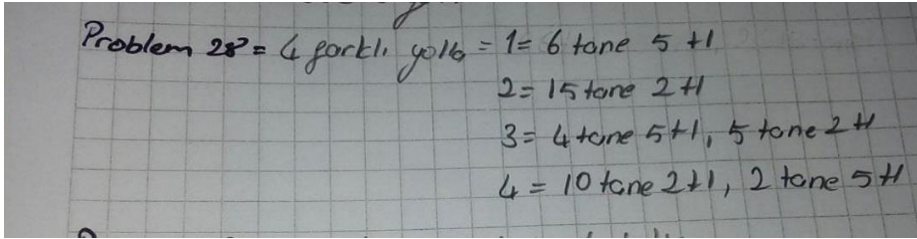 Problem 28 = 4 farklı yolla = 1 = 6 tane 5 tl
2 = 15 tane 2 tl
3 = 4 tane 5 tl, 5 tane 2 tl
4 = 10 tane 2 tl, 2 tane 5 tl